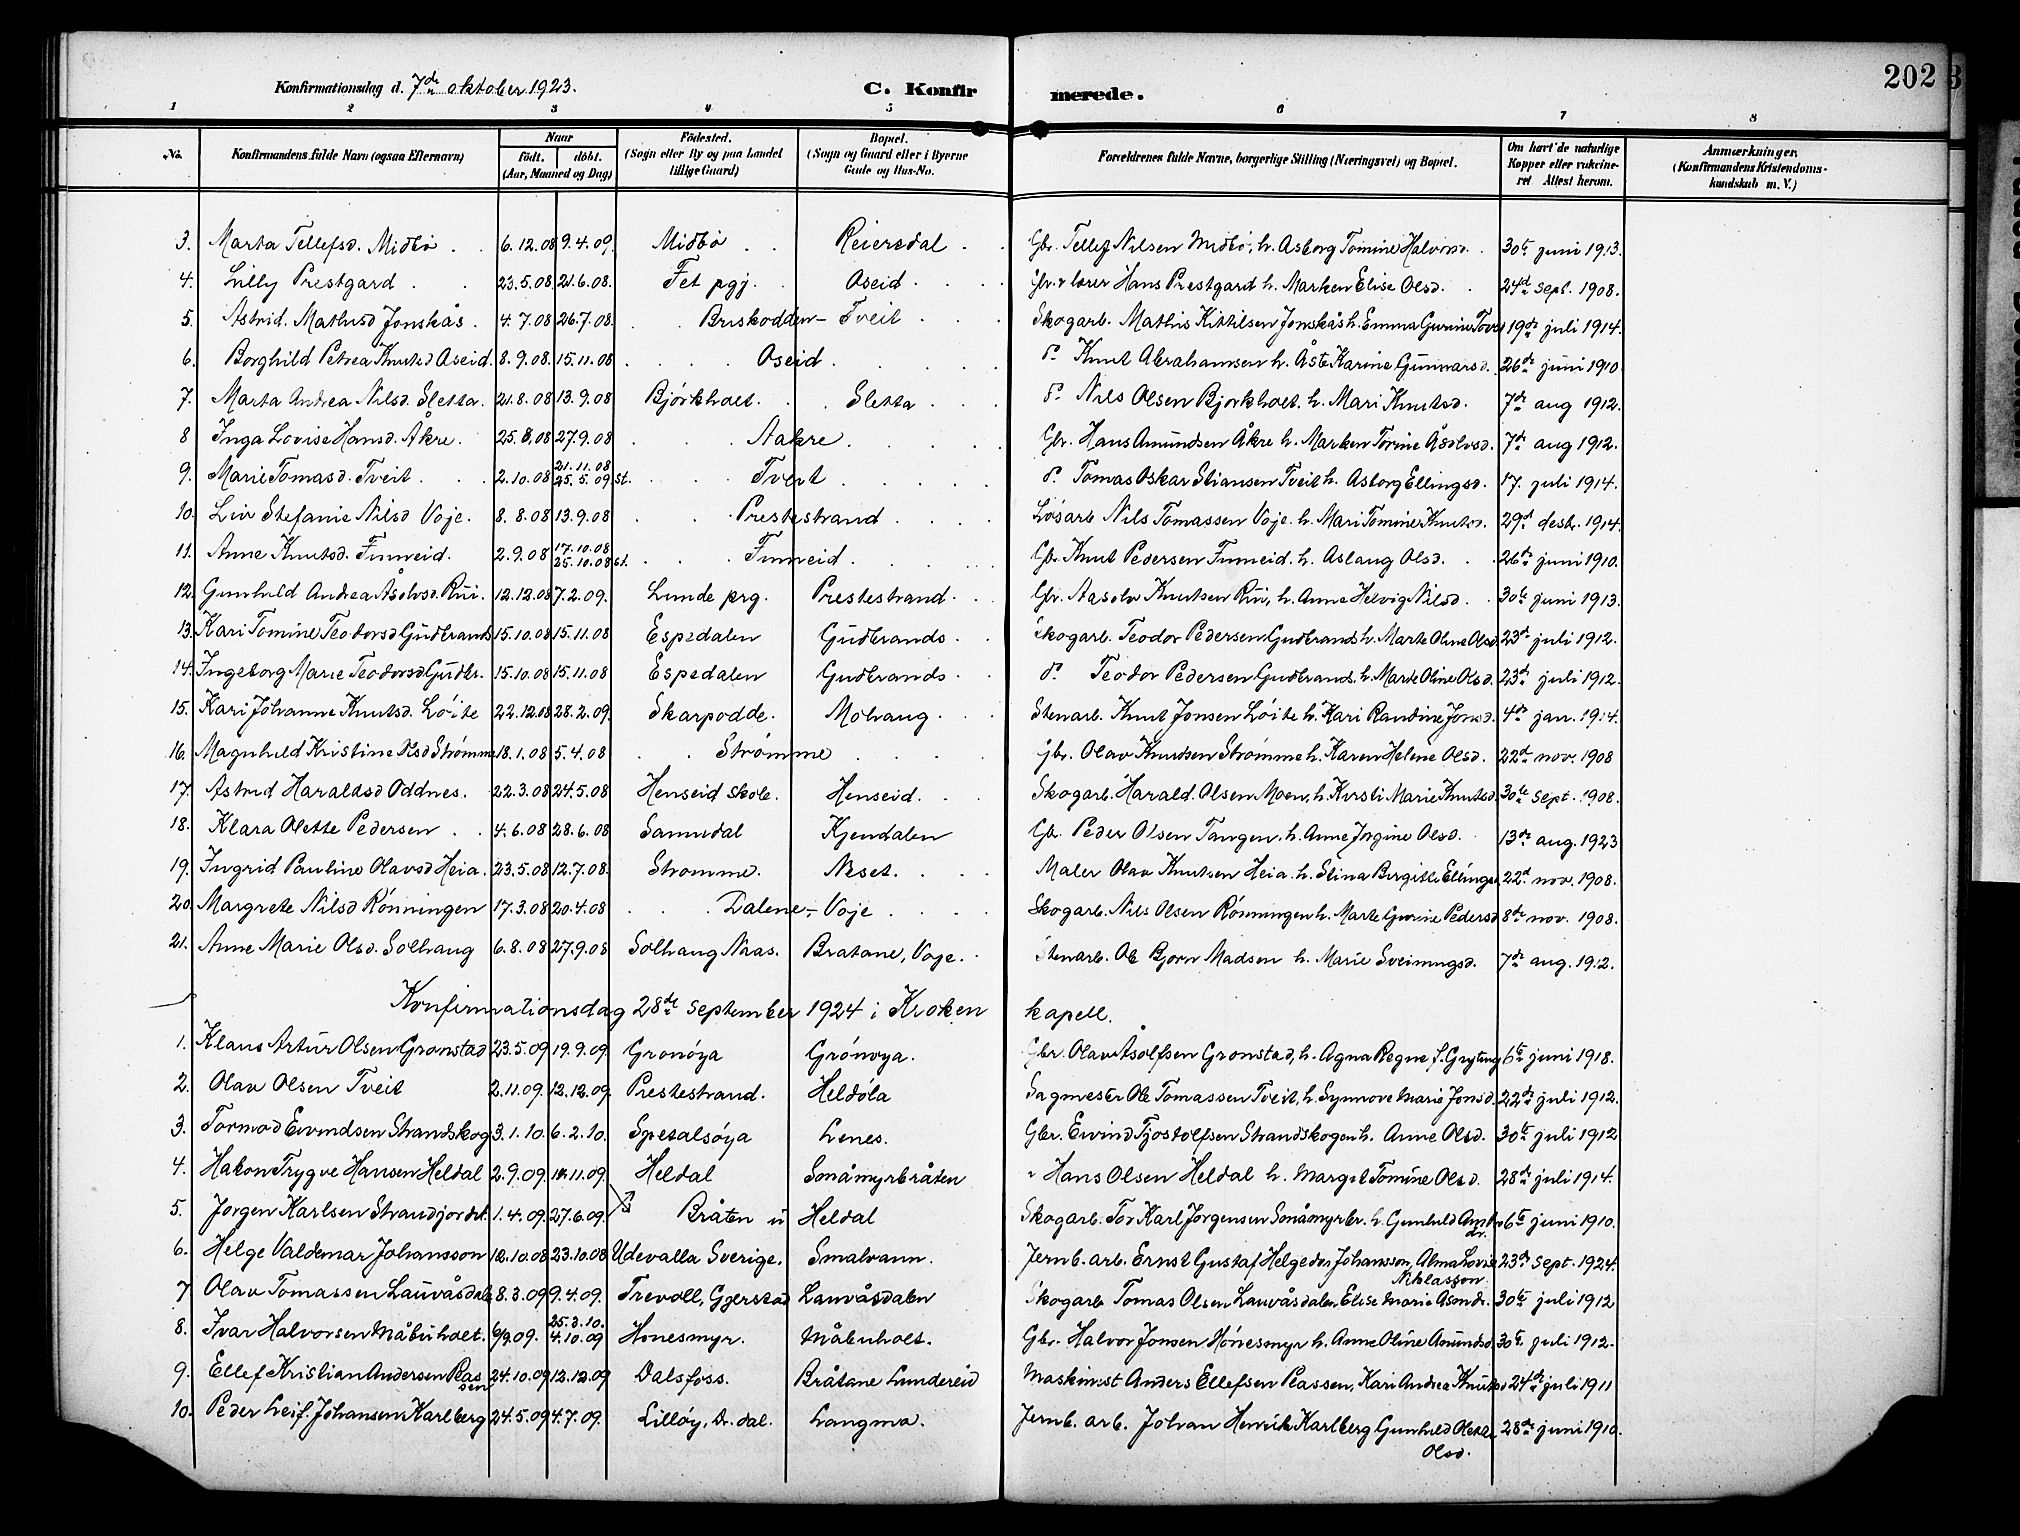 202
Konfirmationsdag d. 7de oktober 1923. C. Konfirmerede.
1 2 3 4 5 6 7 8
No. Konfirmandens fulde Navn (ogsaa Efternavn) Naar födt. döbt. (Aar, Maaned og Dag) Födested. (Sogn eller By og paa Landet tillige Gaard) Bopæl. (Sogn og Gaard eller i Byerne Gade og Hus-No. Forældrenes fulde Navne, borgerlige Stilling (Næringsvei) og Bopæl. Om havt de naturlige Kopper eller vakcineret Attest herom. Anmærkninger. (Konfirmandens Kristendomskundskab m. V.)
3. Marta Tellefsd. Midbö 6.12.08 9.4.09. Midbö Reiersdal Gbr. Tellef Nilsen Midbö, h. Asborg Tomine Halvorsd. 30te juni 1913.
4. Lilly Prestgard 23.5.08 21.6.08. Fet pgj. Aseid Gbr. & lærer Hans Prestgard h. Marken Elise Olsd. 24de sept. 1908.
5. Astrid Mathisd Jonskås 4.7.08 26.7.08. Briskodden - Tveit Skogarb. Mathis Kittilsen Jonskås h. Emma Gurine 19de juli 1914.
6. Borghild Petrea Knutsd Aseid 8.9.08. 15.11.08 Aseid do Knut Abrahamsen h. Åste Karine Gunnarsd. 26de juni 1910
7. Marta Andrea Nilsd. Sletta. 21.8.08 13.9.08 Bjørkholt. Sletta do Nils Olsen Bjorkholt. h. Mari Knutsd. 7de aug 1912.
8 Inga Lovise Hansd. Åkre. 25.8.08 27.9.08 Aakre Gbr. Hans Amundsen Åkre h. Marken Torine Åsolvsd. 7de aug 1912.
9. Marie Tomasd. Tveit 2.10.08 21.11.08 25.5.09 st. Tveit do Tomas Oskar Stiansen Tveit h. Asborg Ellingsd. 17. juli 1914.
10. Liv Stefanie Nilsd Voje. 8.8.08 13.9.08 Prestestrand Løsarb Nils Tomassen Voje. h. Mari Tomine Knutsd. 29de desbr. 1914.
11. Anne Knutsd. Finneid. 2.9.08 17.10.08 25.10.08 st. Finneid Gbr. Knut Pedersen Finneid. h. Aslaug Olsd. 26de juni 1910.
12. Gunhild Andrea Åsolvsd. Rui. 12.12.08 7.2.09. Lunde prg. Prestestrand Gbr. Aasolv Knutsen Rui, h. Anne Helvig Nilsd. 30te juni 1913.
13. Kari Tomine Teodorsd Gudbrands 15.10.08 15.11.08 Espedalen Gudbrands Skogarb. Teodor Pedersen Gudbrands h. Marte Oline Olsd. 23de juli 1912.
14. Ingeborg Marie Teodorsd Gudbr. 15.10.08 15.11.08 Espedalen Gudbrands do Teodor Pedersen Gudbrands. h. Marte Oline Olsd. 23de juli 1912.
15. Kari Johanne Knutsd. Löite 22.12.08 28.2.09. Skarpodde. Mohaug. Stenarb. Knut Jonsen Löite h. Kari Randine Jonsd. 4de jan. 1914.
16. Magnhild Kristine Olsd Strømme 18.1.08 5.4.08 Strømme Gbr. Olav Knutsen Strømme h. Karen Helene Olsd. 22de nov. 1908
17. Astrid Haraldsd Oddnes. 22.3.08 24.5.08 Henseid skole. Henseid. Skogarb. Harald Olsen Moen, h. Kirsti Marie Knutsd. 30te sept. 1908.
18. Klara Olette Pedersen 4.6.08 28.6.08 Sannidal Kjendalen Gbr. Peder Olsen Tangen. h. Anne Jorgine Olsd. 13de aug. 1923
19. Ingrid Pauline Olavsd Heia. 23.5.08 12.7.08. Stromme. Neset. Maler Olav Knutsen Heia. h. Stina Birgitte Ellings 22de nov. 1908.
20. Margrete Nilsd Rönningen 17.3.08 20.4.08 Dalene - Voje Skogarb. Nils Olsen Rönningen h. Marte Gurine Pedersd 8de nov. 1908.
21. Anne Marie Olsd. Solhaug 6.8.08 27.9.08 Solhaug Naas. Bratane, Voje. Stenarb. Ole Bjorn Madsen h. Marie Sveinungsd. 7de aug. 1912.
Konfirmationsdag 28de september 1924 i Kroken kapell.
1. Klaus Artur Olsen Gronstad 23.5.09 19.9.09. Gronöya Grönöya. Gbr. Olav Åsolfsen Gronstad, h. Agna Regne f. Gryting 6te juni 1918.
2. Olav Olsen Tveit 2.11.09. 12.12.09. Prestestrand. Heldöla Sagmester Ole Tomassen Tveit, h. Synnove Marie Jonsd. 22de juli 1912.
3. Tormod Eivindsen Strandskog 3.1.10. 6.2.10. Spetalsöya Lenes. Gbr. Eivind Tjostolfsen Strandskogen h. Anne Olsd. 30te juli 1912
4. Håkon Trygve Hansen Heldal 2.9.09. 11.09 Heldal Småmyrbråten " Hans Olsen Heldal h. Margit Tomine Olsd. 28de juli 1914.
5. Jørgen Karlsen Strandjordet. 1.4.09. 27.6.09. Bråten u Heldal Skogarb. Tor Karl Jörgensen Småmyrbr. h. Gunhild 6te juni 1910.
6. Helge Valdemar Johansson 12.10.08 23.10.08 Udevalla Sverige. Smalvann. Jernb. arb. Ernst Gustaf Helgedor Johansson, Alma Lovise Niklasson 23de sept. 1924.
7 Olav Tomassen Lauvåsdal 8.3.09 9.4.09. Trevoll, Gjerstad Lauvåsdalen Skogarb Tomas Olsen Lauvåsdalen Elise Marie 30te juli 1912
8. Ivar Halvorsen Måbuholt. 6/9.09. 25.3.10. 4.10.09 Hönesmyr. Måbuholt. Gbr. Halvor Jonsen Hönesmyr h. Anne Oline Amundsd. 30te juli 1912.
9. Ellef Kristian Andersen Plassen 24.10.09 12.12.09 Dalsfoss. Bråtane Lundereid Maskinist Anders Ellefsen Plassen, Kari Andrea Knutsd 24de juli 1911
10. Peder Leif Johansen Karlberg 24.5.09 4.7.09. Lilløy, Dr.dal. Langmo. Jernb. arb. Johan Henrik Karlberg Gunhild Olette Olsd. 28de juni 1910.